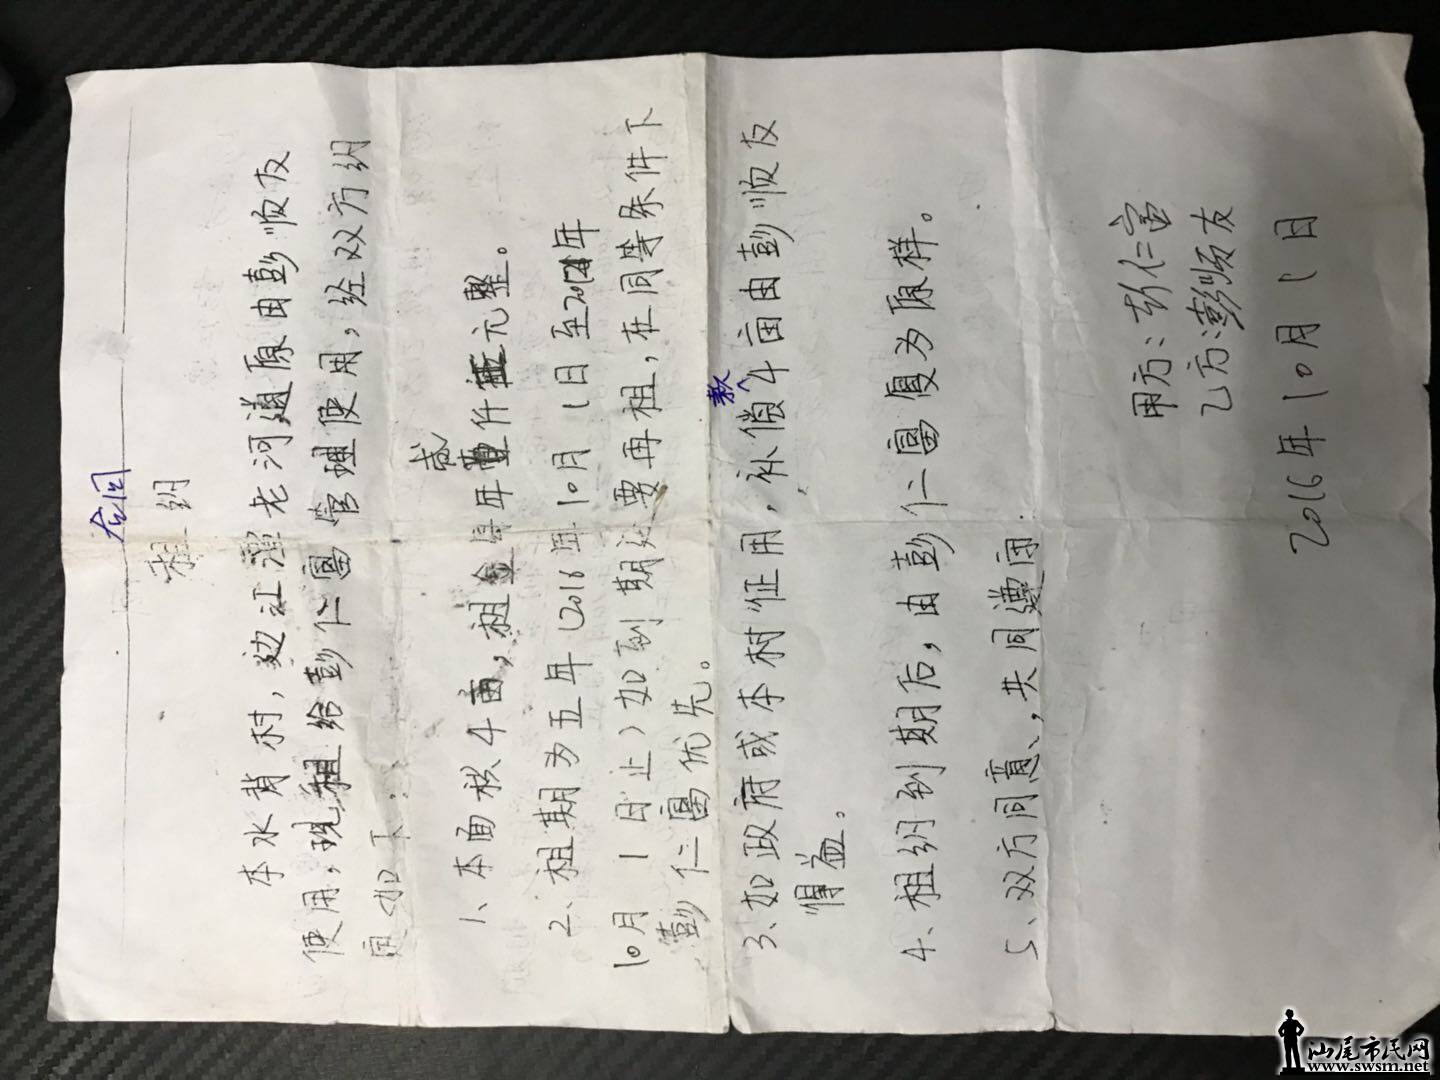 合同
租约
本水背村，边江潭老河道原由彭顺友
使用，现租给彭仁富管理使用，经双方约
定如下：
1、本面积4亩，租金每年贰仟元整。
2、租期为五年（2016年10月1日至2021年
10月1日止）如到期还要再租，在同等条件下
彭仁富优先。
3、如政府或本村征用，补偿款4亩由彭顺友
得益。
4、租约到期后，由彭仁富复为原样。
5、双方同意、，共同遵守.
甲方：彭仁富
乙方：彭顺友
2016年10月1日
汕尾市民网
www.swsm.net